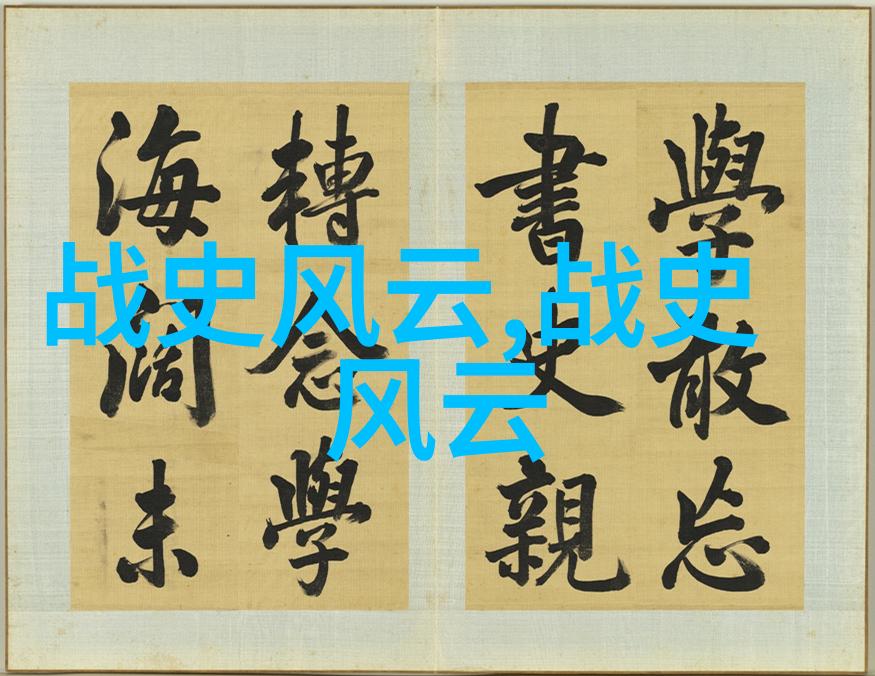 战史风云,战史
风云
學敢忘
書史親
轉念學
海闊未